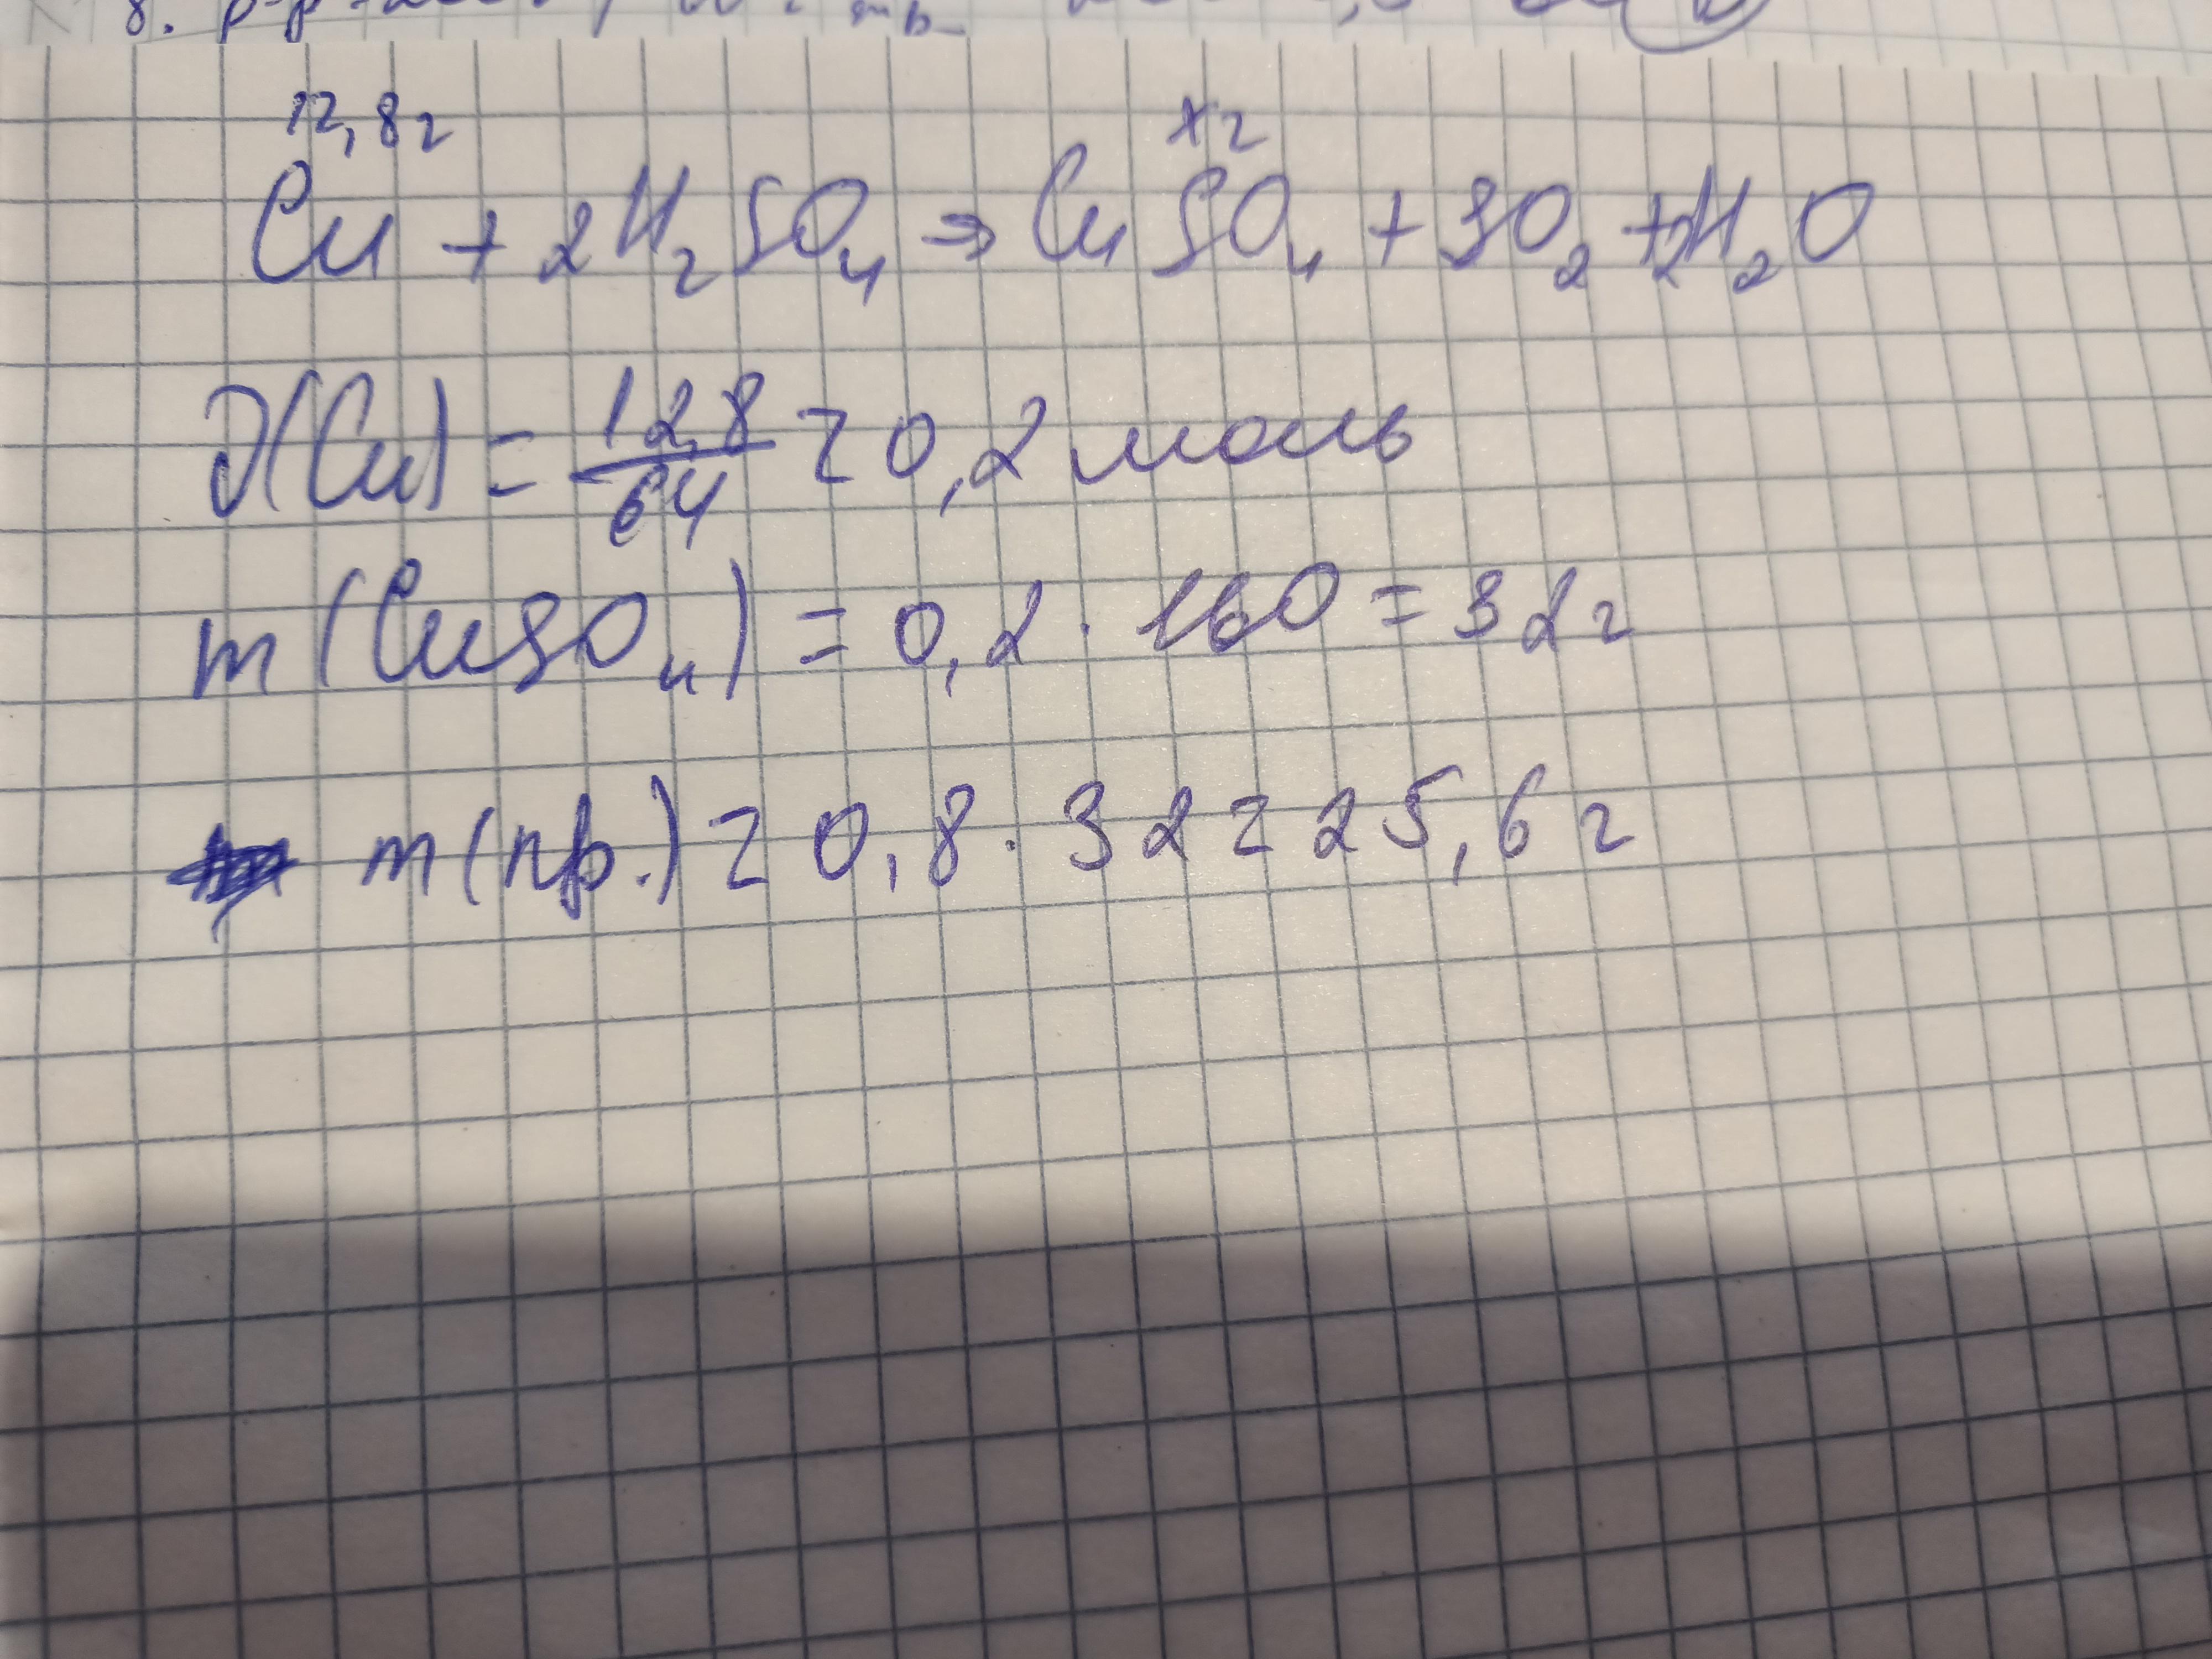 8.
12,8г xг
Cu + 2H₂SO₄ → CuSO₄ + SO₂ + 2H₂O
ν(Cu) = 12,8/64 = 0,2 моль
m(CuSO₄) = 0,2 · 160 = 32г
m(пр.) = 0,8 · 32 = 25,6г